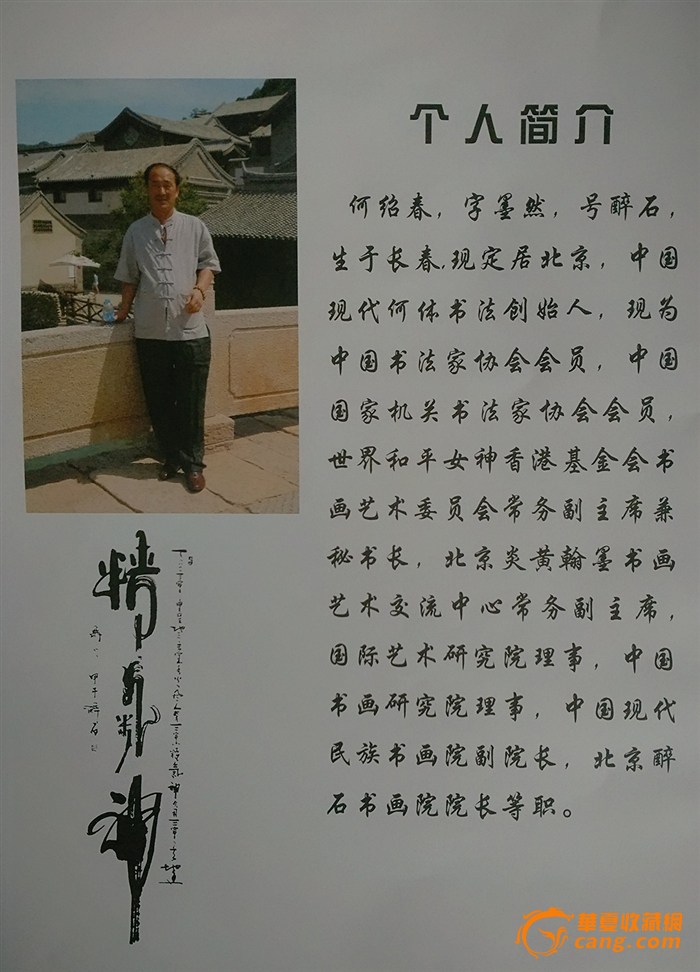 个人简介
何绍春，字墨然，号醉石，
生于长春,现定居北京，中国
现代何体书法创始人，现为
中国书法家协会会员，中国
国家机关书法家协会会员，
世界和平女神香港基金会书
画艺术委员会常务副主席兼
秘书长，北京炎黄翰墨书画
艺术交流中心常务副主席，
国际艺术研究院理事，中国
书画研究院理事，中国现代
民族书画院副院长，北京醉
石书画院院长等职。
精
神
華夏收藏網
cang.com